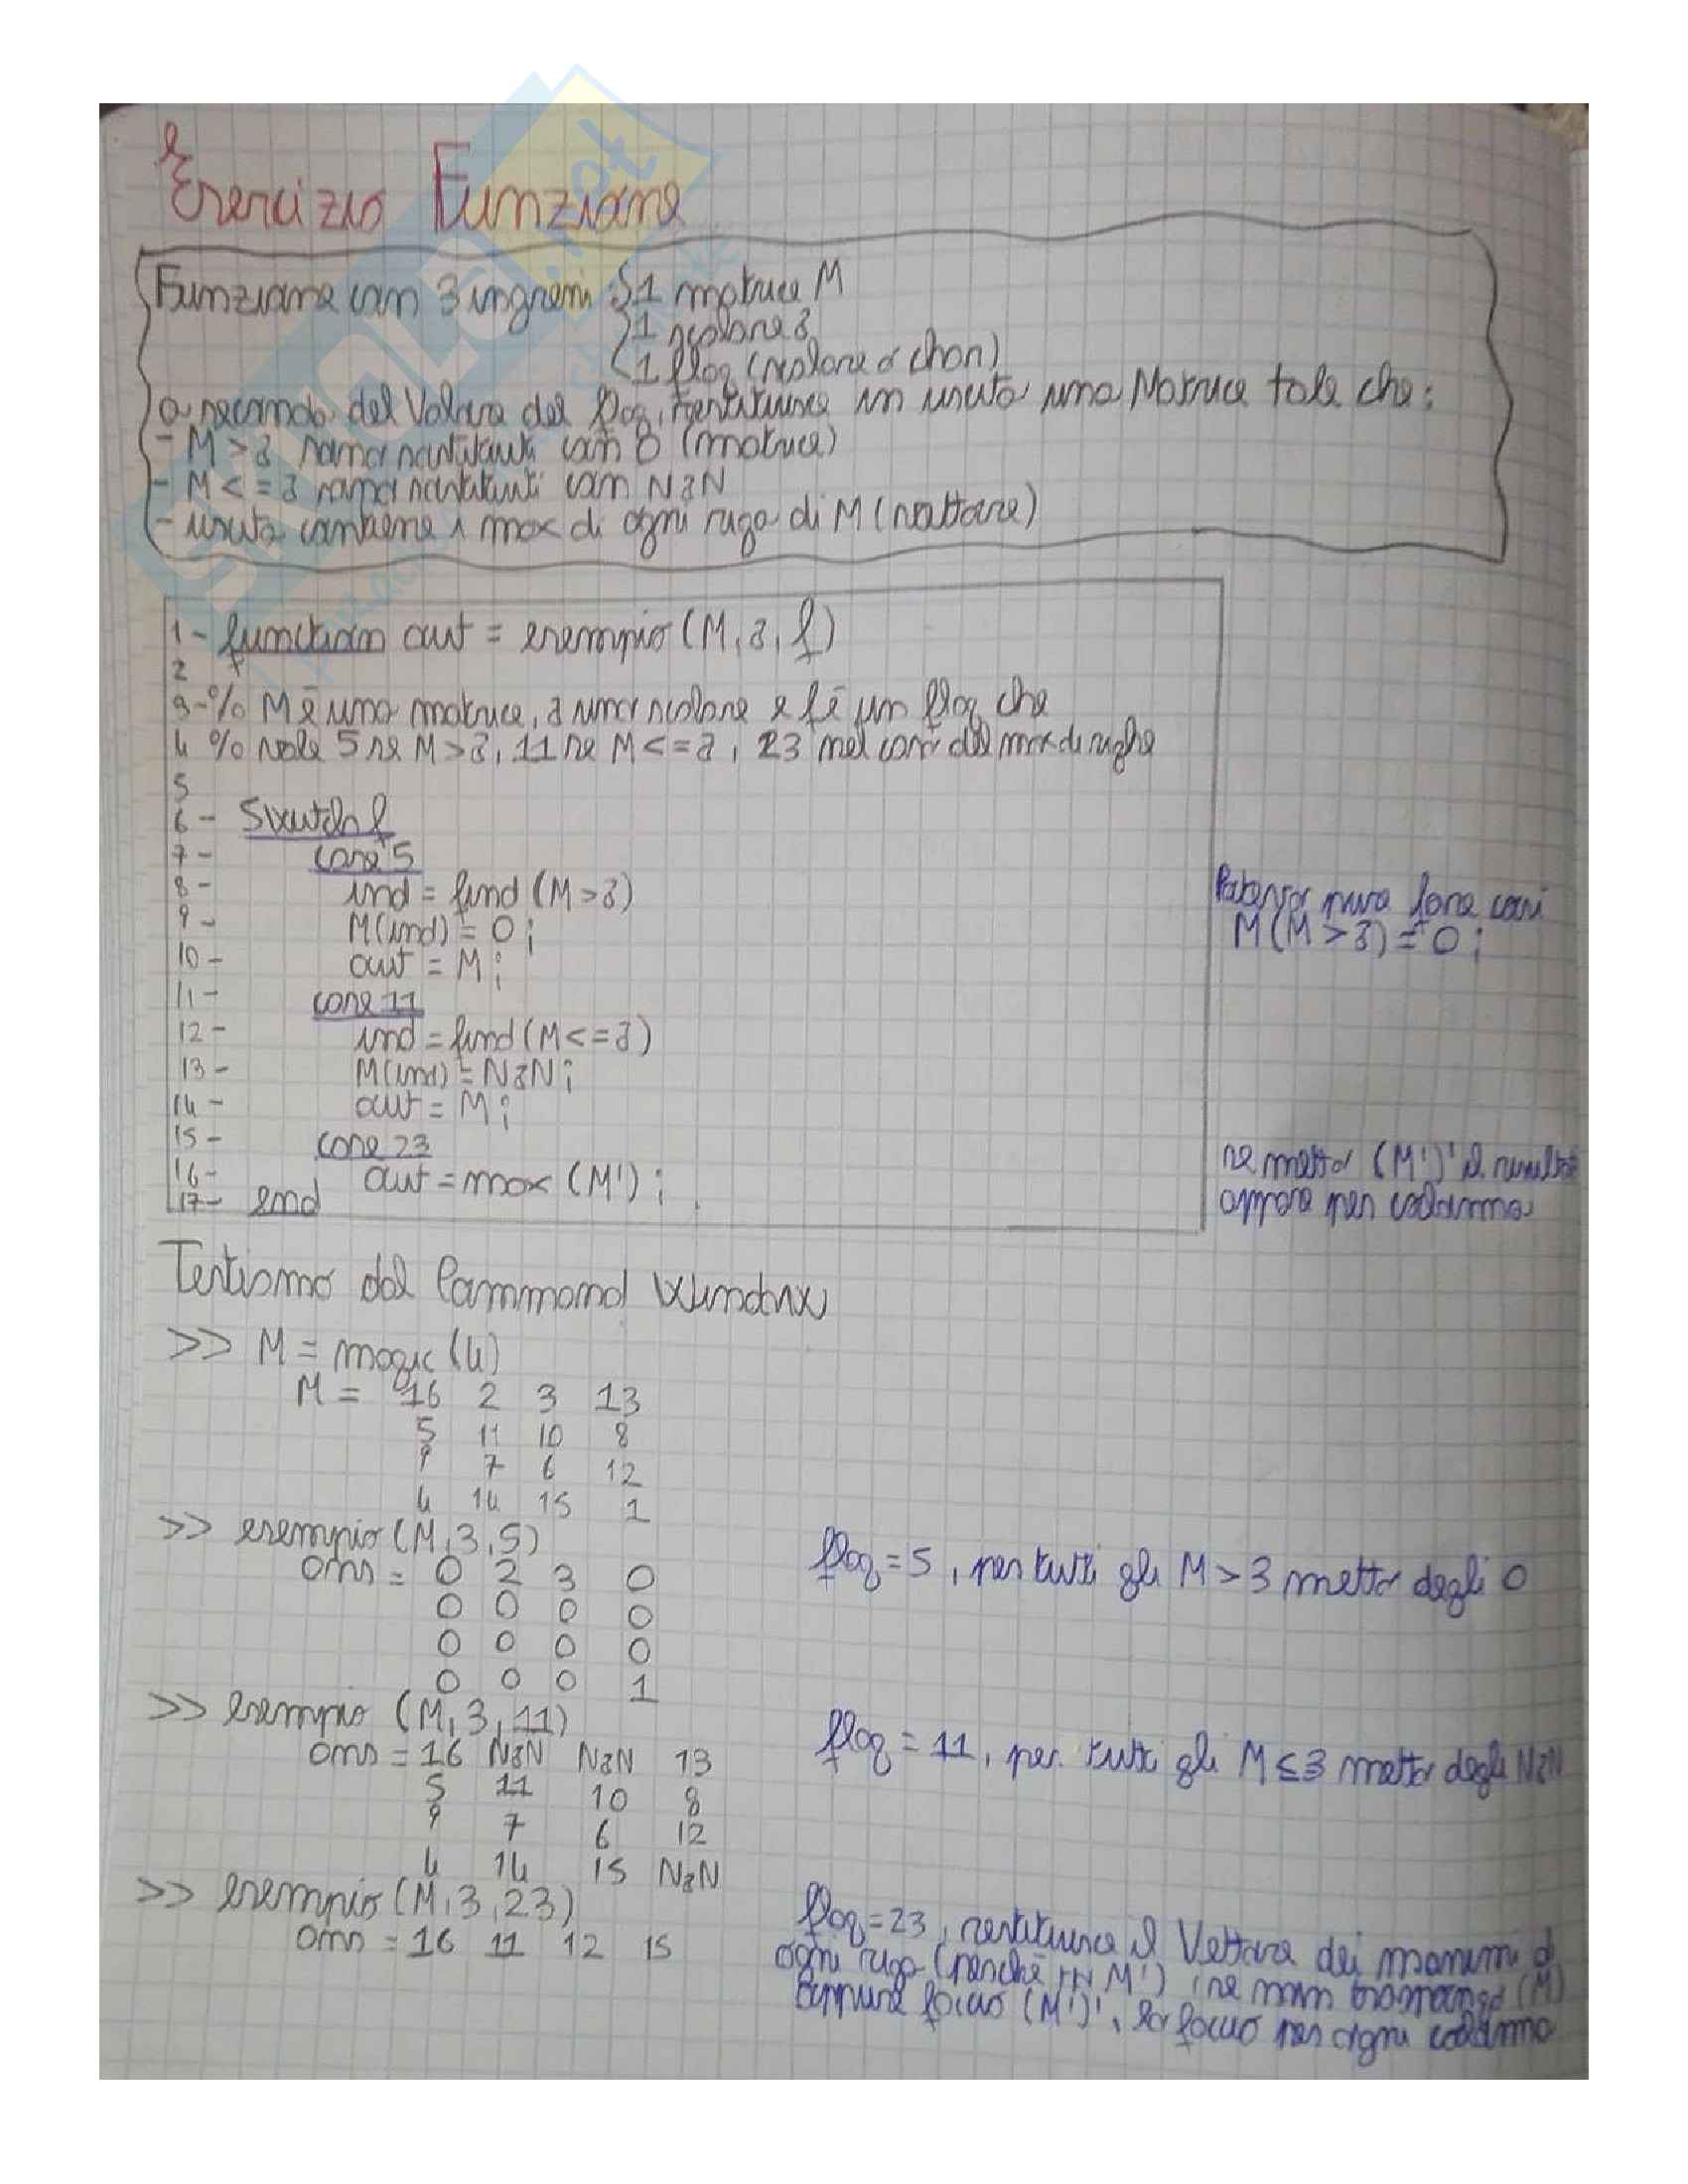 Esercizio Funzione
Funzione con 3 ingressi: 1 matrice M
1 scalare a
1 flag (scalare o char)
a seconda del valore del flag, restituisce in uscita una Matrice tale che:
- M > a sono sostituiti con 0 (matrice)
- M <= a sono sostituiti con NaN
- uscita contiene i max di ogni riga di M (vettore)
1- function out = esempio (M, a, f)
2
3- % M è una matrice, a uno scalare e f è un flag che
4 % vale 5 se M > a, 11 se M <= a, 23 nel caso del max di righe
5
6- Switch f
7- case 5
8- ind = find (M > a)
9- M(ind) = 0;
10- out = M;
11- case 11
12- ind = find (M <= a)
13- M(ind) = NaN;
14- out = M;
15- case 23
16- out = max (M');
17- end
Potevo pure fare così
M (M > a) = 0;
se metto (M')' il risultato
appare per colonna
Testiamo dal Command Window
>> M = magic (4)
M = 16 2 3 13
5 11 10 8
9 7 6 12
4 14 15 1
>> esempio (M, 3, 5)
ans = 0 2 3 0
0 0 0 0
0 0 0 0
0 0 0 1
flag = 5, per tutti gli M > 3 metto degli 0
>> esempio (M, 3, 11)
ans = 16 NaN NaN 13
5 11 10 8
9 7 6 12
4 14 15 NaN
flag = 11, per tutti gli M ≤ 3 metto degli NaN
>> esempio (M, 3, 23)
ans = 16 11 12 15
flag = 23, restituisce il Vettore dei massimi d
ogni riga (perchè M') se non traspongo (M)
oppure faccio (M')', lo faccio per ogni colonna